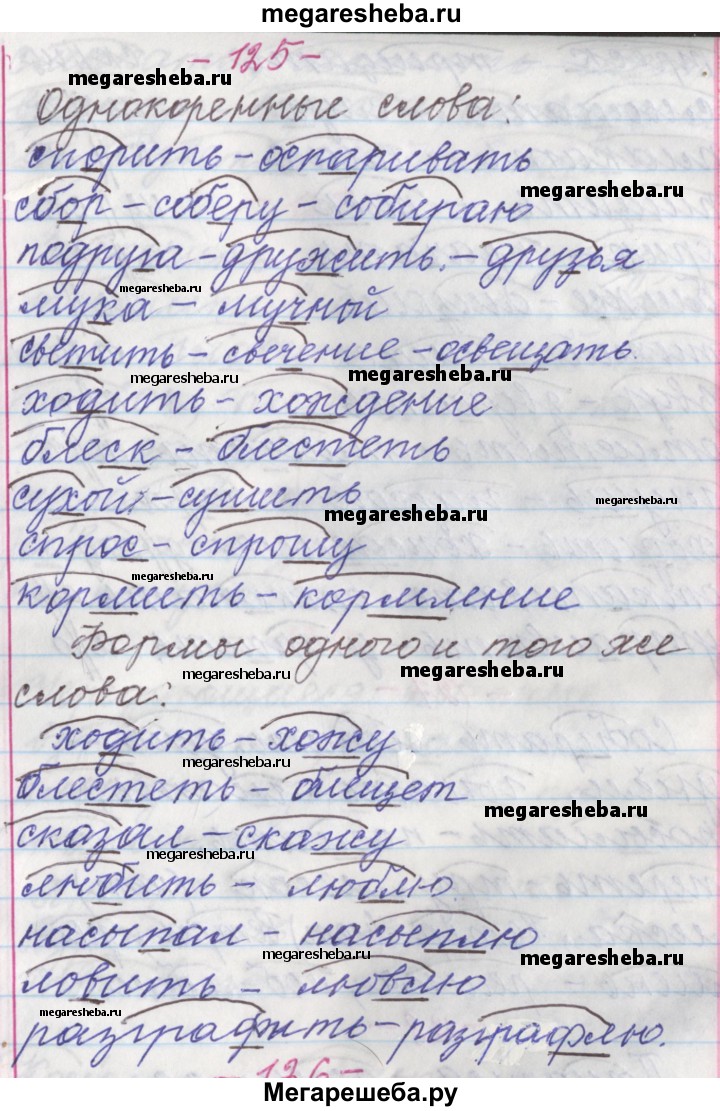 megaresheba.ru
- 125 -
megaresheba.ru
Однокоренные слова:
спорить - оспаривать
megaresheba.ru
сбор - соберу - собираю
подруга - дружить. - друзья
megaresheba.ru
мука - мучной
светить - свечение - освещать.
megaresheba.ru megaresheba.ru
ходить - хождение
блеск - блестеть
сухой, - сушить
megaresheba.ru
megaresheba.ru
спрос - спрошу
megaresheba.ru
кормить - кормление
Формы одного и того же
megaresheba.ru megaresheba.ru
слова:
ходить - хожу
megaresheba.ru
блестеть - блещет
megaresheba.ru
сказал - скажу
megaresheba.ru
любить - люблю
насыпал - насыплю
megaresheba.ru megaresheba.ru
ловить - ловлю
megaresheba.ru
разграфить - разграфлю.
- 126 -
Мегарешеба.ру